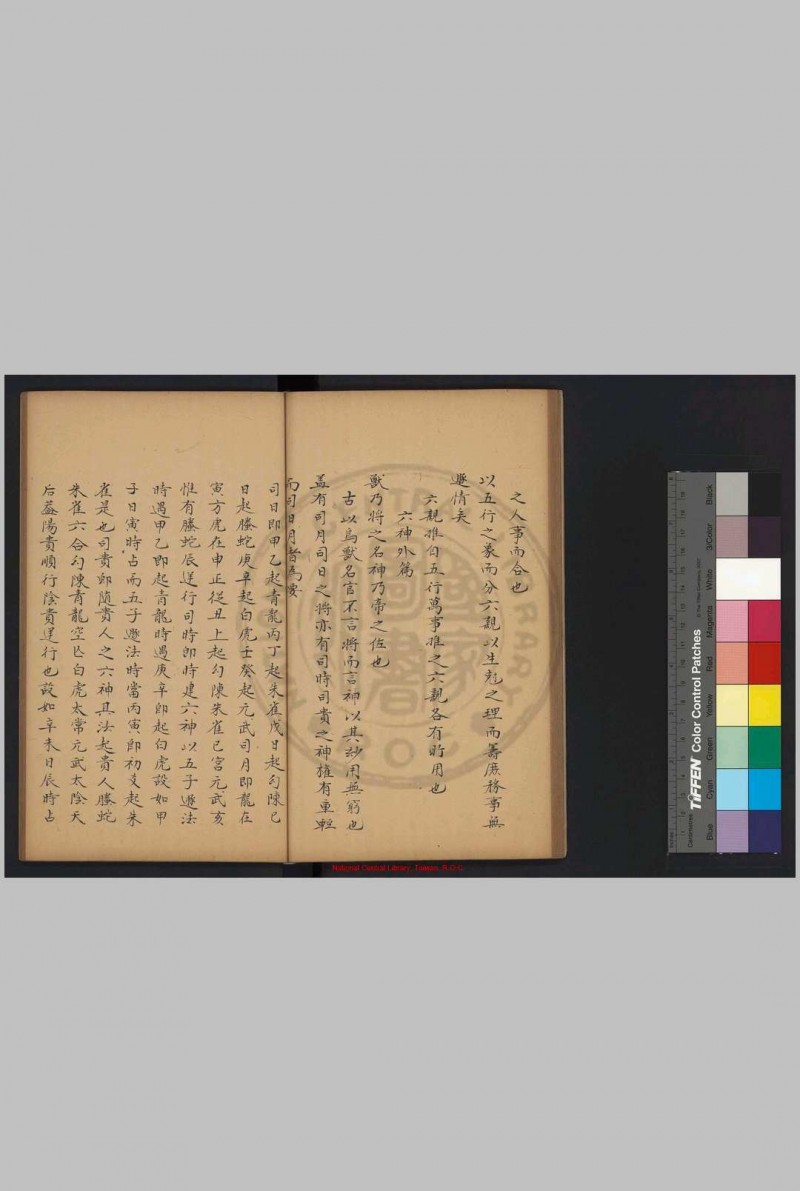 之人事而合也
以五行之象而分六親以生剋之理而籌庶務事無
遯情矣
六親推自五行萬事推之六親各有所用也
六神外篇
獸乃將之名神乃帝之佐也
古以鳥獸名官不言將而言神以其妙用無窮也
盖有司月司日之將亦有司時司貴之神植有重輕
而司日月者為要
司日即甲乙起青龍丙丁起朱雀戊日起勾陳己
日起螣蛇庚辛起白虎壬癸起元武司月即龍在
寅方虎在申正從丑上起勾陳朱雀巳宮元武亥
惟有螣蛇辰逆行司時即時建六神以五子遯法
時遇甲乙即起青龍時遇庚辛即起白虎設如甲
子日寅時占而五子遯法時當丙寅即初爻起朱
雀是也司貴即隨貴人之六神其法起貴人螣蛇
朱雀六合勾陳青龍空亡白虎太常元武太陰天
后葢陽貴順行陰貴逆行也設如辛未日辰時占
National Central Library, Taiwan, R.O.C
TIFFEN Color Control Patches
Centimetres
Blue
Cyan
Green
Yellow
Red
Magenta
White
3/Color
Black